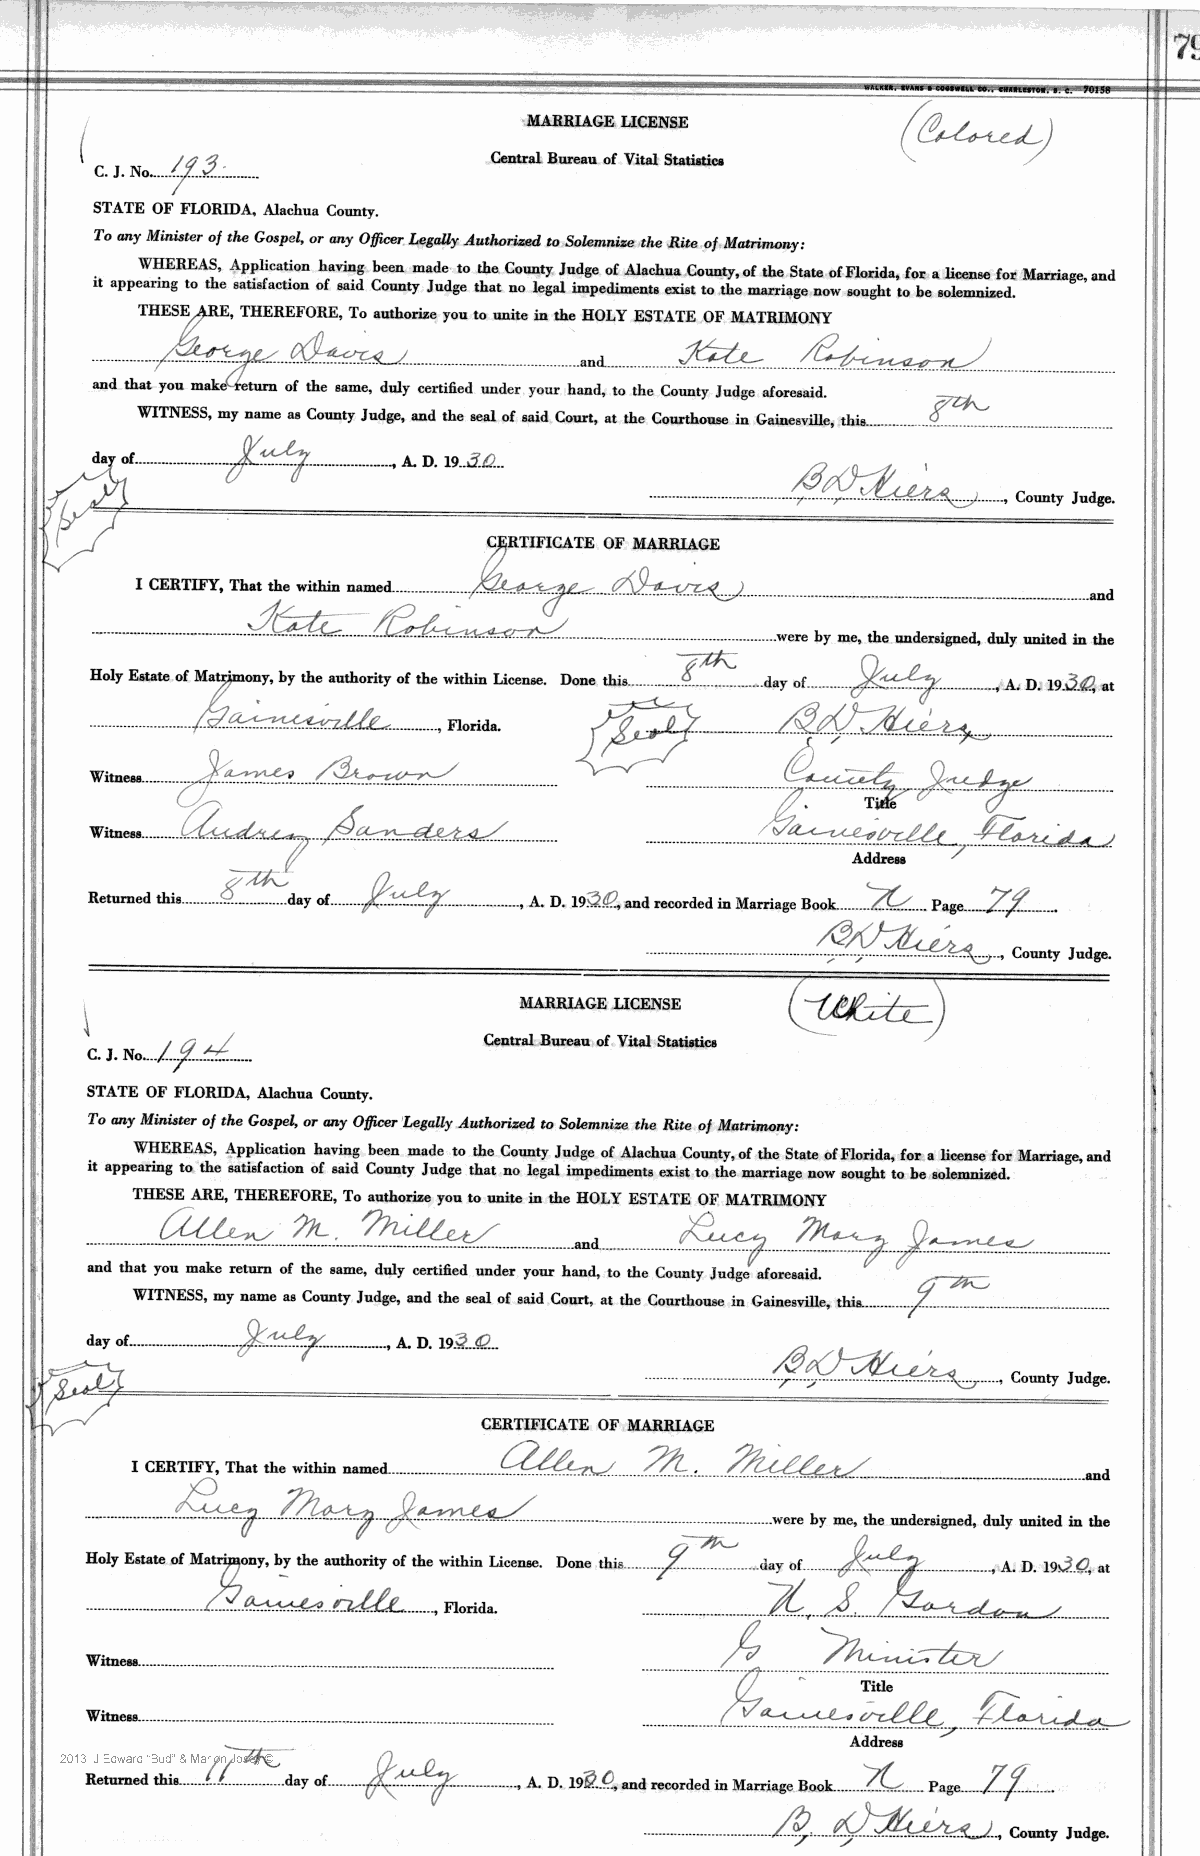 79
WALKER, EVANS & COGSWELL CO., CHARLESTON, S. C. 70158
MARRIAGE LICENSE
(Colored)
Central Bureau of Vital Statistics
C. J. No. 193
STATE OF FLORIDA, Alachua County.
To any Minister of the Gospel, or any Officer Legally Authorized to Solemnize the Rite of Matrimony:
WHEREAS, Application having been made to the County Judge of Alachua County, of the State of Florida, for a license for Marriage, and
it appearing to the satisfaction of said County Judge that no legal impediments exist to the marriage now sought to be solemnized.
THESE ARE, THEREFORE, To authorize you to unite in the HOLY ESTATE OF MATRIMONY
George Davis and Kate Robinson
and that you make return of the same, duly certified under your hand, to the County Judge aforesaid.
WITNESS, my name as County Judge, and the seal of said Court, at the Courthouse in Gainesville, this 8th
day of July, A. D. 1930
Seal
B, D, Hiers, County Judge.
CERTIFICATE OF MARRIAGE
I CERTIFY, That the within named George Davis and
Kate Robinson were by me, the undersigned, duly united in the
Holy Estate of Matrimony, by the authority of the within License. Done this 8th day of July, A. D. 1930, at
Gainesville, Florida. Seal B, D, Hiers,
Witness James Brown County Judge
Title
Witness Audrey Sanders Gainesville, Florida
Address
Returned this 8th day of July, A. D. 1930, and recorded in Marriage Book N Page 79
B, D, Hiers, County Judge.
MARRIAGE LICENSE
(White)
Central Bureau of Vital Statistics
C. J. No. 194
STATE OF FLORIDA, Alachua County.
To any Minister of the Gospel, or any Officer Legally Authorized to Solemnize the Rite of Matrimony:
WHEREAS, Application having been made to the County Judge of Alachua County, of the State of Florida, for a license for Marriage, and
it appearing to the satisfaction of said County Judge that no legal impediments exist to the marriage now sought to be solemnized.
THESE ARE, THEREFORE, To authorize you to unite in the HOLY ESTATE OF MATRIMONY
Allen M. Miller and Lucy Mary James
and that you make return of the same, duly certified under your hand, to the County Judge aforesaid.
WITNESS, my name as County Judge, and the seal of said Court, at the Courthouse in Gainesville, this 9th
day of July, A. D. 1930
Seal
B, D, Hiers, County Judge.
CERTIFICATE OF MARRIAGE
I CERTIFY, That the within named Allen M. Miller and
Lucy Mary James were by me, the undersigned, duly united in the
Holy Estate of Matrimony, by the authority of the within License. Done this 9th day of July, A. D. 1930, at
Gainesville, Florida. S. Gordon
Witness Minister
Title
Witness Gainesville, Florida
Address
2013 J Edward "Bud" & Marion Josey ©
Returned this 11th day of July, A. D. 1930, and recorded in Marriage Book N Page 79
B, D, Hiers, County Judge.